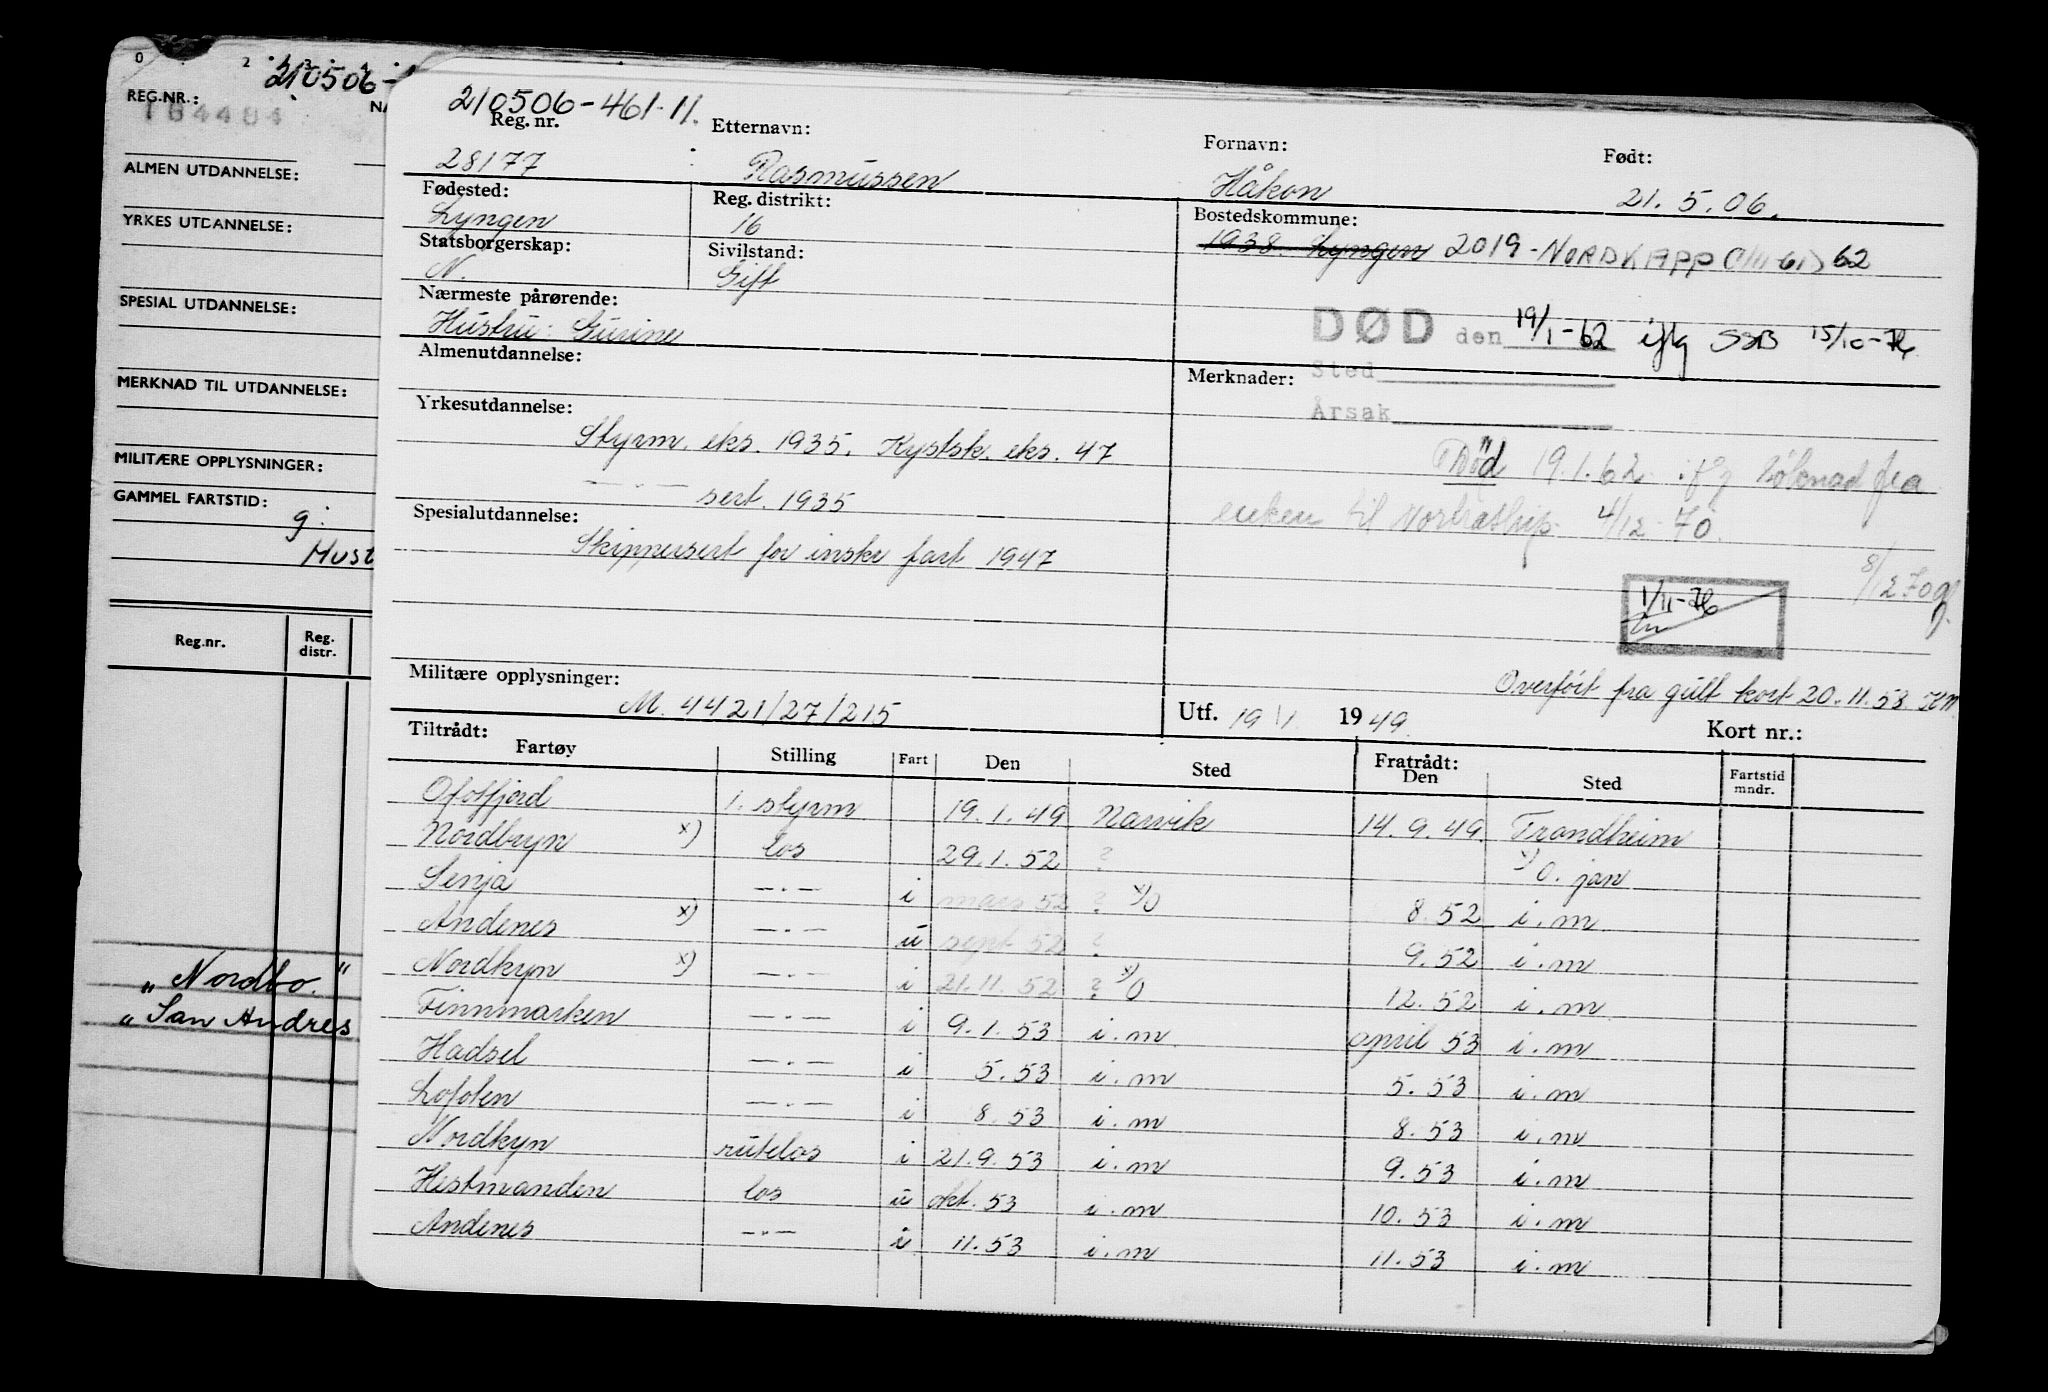 0 2 3 4
210506-
REG.NR.:
184484
NA
ALMEN UTDANNELSE:
YRKES UTDANNELSE:
SPESIAL UTDANNELSE:
MERKNAD TIL UTDANNELSE:
MILITÆRE OPPLYSNINGER:
GAMMEL FARTSTID:
g:
Hust
Reg.nr. Reg. distr.
„Nordbo."
„San Andres
210506-461-11.
Reg. nr. Etternavn: Fornavn: Født:
28177 Rasmussen Håkon 21.5.06.
Fødested: Reg. distrikt: Bostedskommune:
Lyngen 16 1938 Lyngen 2019-NORDKAPP (1/11-61) 62
Statsborgerskap: Sivilstand:
N. Gift
Nærmeste pårørende:
Hustru: Gurine
DØD den 19/1-62 iflg SSB 15/10-76
Sted
Årsak
Almenutdannelse: Merknader:
Yrkesutdannelse:
Styrm. eks. 1935. Kystsk. eks. 47
—.— sert. 1935
Død 19.1.62 ifg søknad fra
enken til Nortraship 4/12-70.
8/12 70
Spesialutdannelse:
Skippersert for inskr fart 1947
1/11-76
Overført fra gult kort 20.11.58
Militære opplysninger:
M. 4421/27/215
Utf. 19/1 1949. Kort nr.:
Tiltrådt: Fratrådt:
Fartøy Stilling Fart Den Sted Den Sted Fartstid mndr.
Ofotfjord 1. styrm 19.1.49 Narvik 14.9.49 Trondheim
Nordbryn x) los 29.1.52 ? x) O. jan
Senja —.— i mars 52 ? x) O 8.52 i.m
Andenes x) —.— u sept 52 ? 9.52 i.m
Nordkyn x) —.— i 21.11.52 ? x) O 12.52 i.m
Finnmarken —.— i 9.1.53 i.m april 53 i.m
Hadsel —.— i 5.53 i.m 5.53 i.m
Lofoten —.— i 8.53 i.m 8.53 i.m
Nordkyn rutelos i 21.9.53 i.m 9.53 i.m
Hestmanden los u okt. 53 i.m 10.53 i.m
Andenes —.— i 11.53 i.m 11.53 i.m